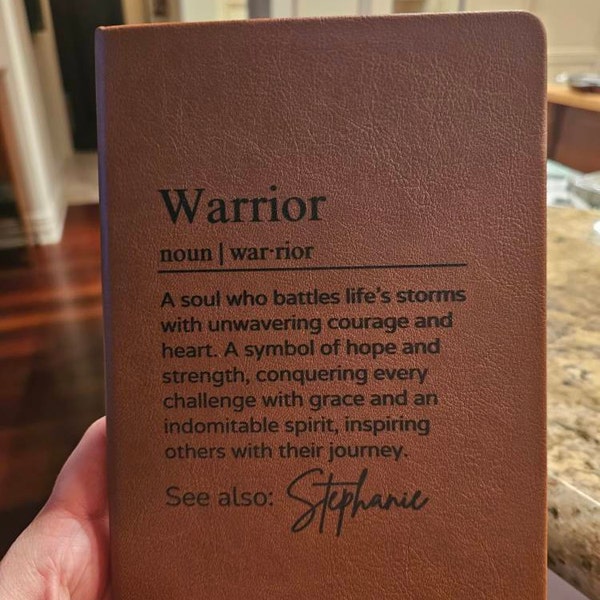 Warrior
noun | war·rior
A soul who battles life's storms
with unwavering courage and
heart. A symbol of hope and
strength, conquering every
challenge with grace and an
indomitable spirit, inspiring
others with their journey.
See also: Stephanie